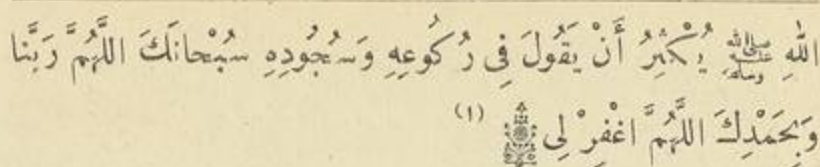 اللهِ ﷺ يُكْثِرُ أَنْ يَقُولَ فِى رُكُوعِهِ وَسُجُودِهِ سُبْحانَكَ اللَّهُمَّ رَبَّنَا
وَبِحَمْدِكَ اللَّهُمَّ اغْفِرْ لِى (١)